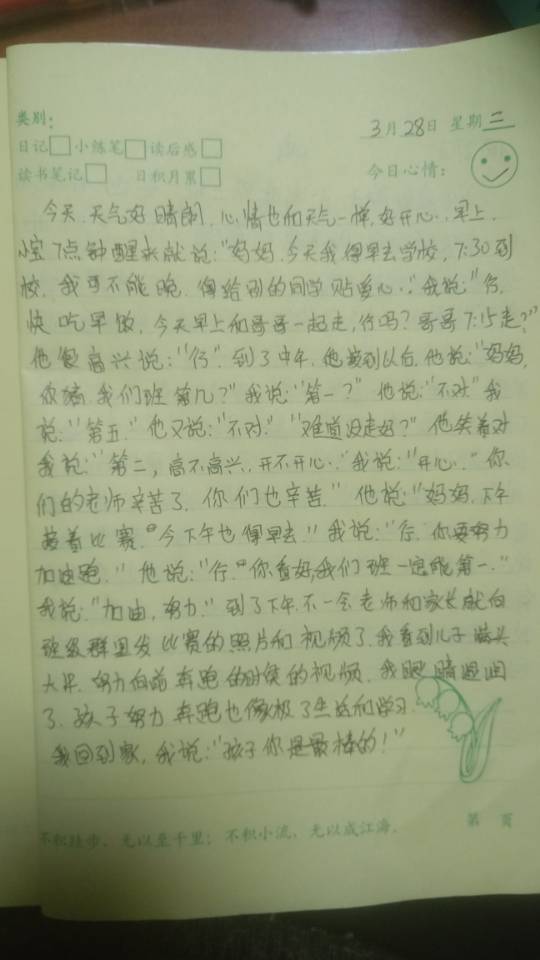 类别：
3月28日 星期二
日记 小练笔 读后感
读书笔记 日积月累 今日心情：
今天，天气好晴朗，心情也和天气一样，好开心，早上，
小宝7点钟醒来就说："妈妈，今天我得早去学校，7:30到
校，我可不能晚，得给别的同学贴爱心。"我说："行，
快吃早饭，今天早上和哥哥一起走，行吗？哥哥7:15走？"
他很高兴说："行"。到了中午，他接到以后，他说："妈妈，
你猜，我们班第几？"我说："第一？"他说："不对"我
说："第五"他又说："不对""难道没走好？"他笑着对
我说："第二，高不高兴，开不开心。"我说："开心。"你
们的老师辛苦了，你们也辛苦"他说："妈妈，下午
接着比赛，今下午也得早去"我说："行，你要努力
加油跑。"他说："行，你看好我们班一定能第一。"
我说："加油，努力"到了下午不一会老师和家长就向
班级群里发比赛的照片和视频了，我看到儿子满头
大汗，努力向前奔跑的时候的视频，我眼睛湿润
了，孩子努力奔跑也像极了生活和学习
我回到家，我说："孩子你是最棒的！"
不积跬步，无以至千里；不积小流，无以成江海。 第 页